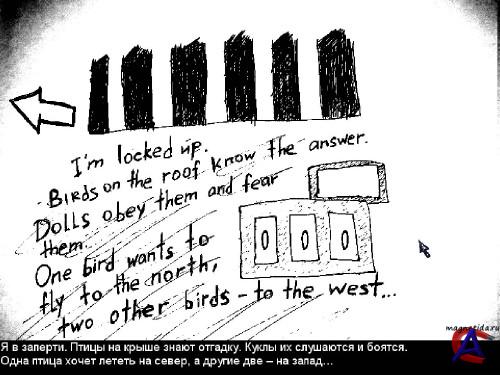 I'm locked up.
Birds on the roof know the answer.
Dolls obey them and fear
them.
One bird wants to
fly to the north,
two other birds – to the west...
0 0 0
magnetida.ru
Я в заперти. Птицы на крыше знают отгадку. Куклы их слушаются и боятся.
Одна птица хочет лететь на север, а другие две – на запад...